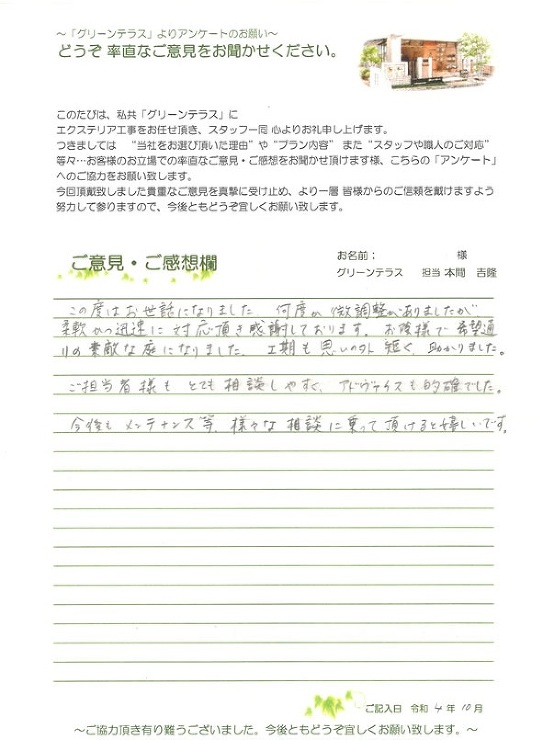 ～「グリーンテラス」よりアンケートのお願い～
どうぞ 率直なご意見をお聞かせください。
このたびは、私共「グリーンテラス」に
エクステリア工事をお任せ頂き、スタッフ一同 心よりお礼申し上げます。
つきましては “当社をお選び頂いた理由” や “プラン内容” また “スタッフや職人のご対応”
等々…お客様のお立場での率直なご意見・ご感想をお聞かせ頂けます様、こちらの「アンケート」
へのご協力をお願い致します。
今回頂戴致しました貴重なご意見を真摯に受け止め、より一層 皆様からのご信頼を戴けますよう
努力して参りますので、今後ともどうぞ宜しくお願い致します。
お名前： 様
ご意見・ご感想欄
グリーンテラス 担当 本間 吉隆
この度はお世話になりました。何度か微調整がありましたが
柔軟かつ迅速に対応頂き感謝しております。お陰様で希望通
りの素敵な庭になりました。工期も思いの外短く、助かりました。
ご担当者様もとても相談しやすく、アドヴァイスも的確でした。
今後もメンテナンス等、様々な相談に乗って頂けると嬉しいです。
ご記入日 令和 4 年 10 月
～ご協力頂き有り難うございました。今後ともどうぞ宜しくお願い致します。～